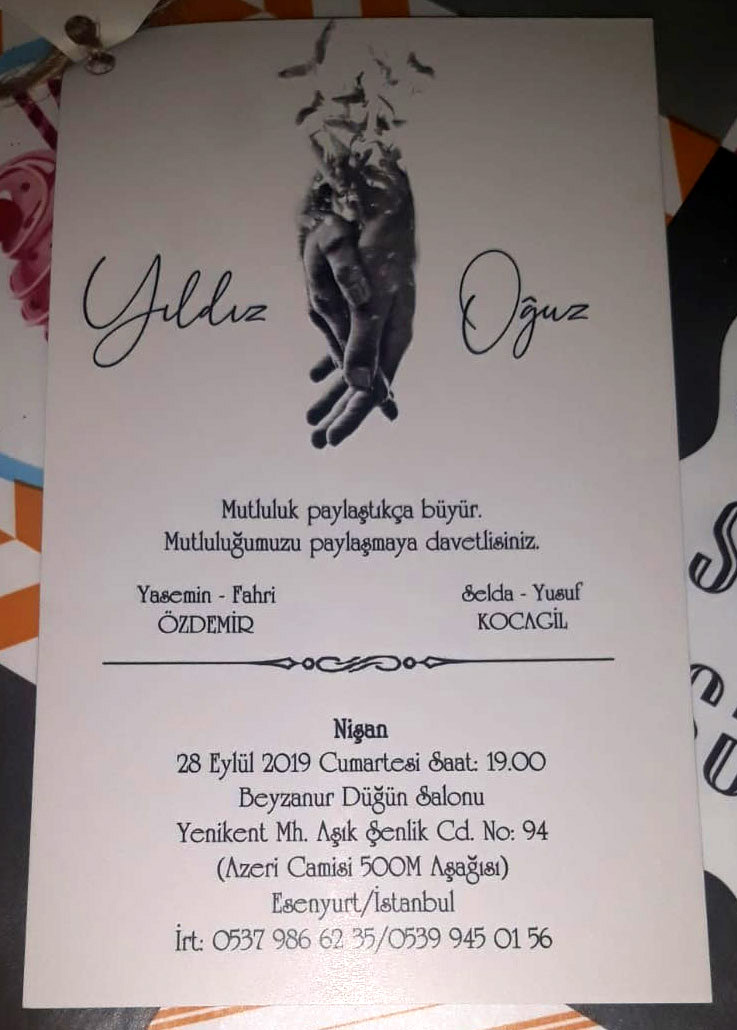 Yıldız
Oğuz
Mutluluk paylaştıkça büyür.
Mutluluğumuzu paylaşmaya davetlisiniz.
Yasemin - Fahri
ÖZDEMİR
Selda - Yusuf
KOCAGİL
Nişan
28 Eylül 2019 Cumartesi Saat: 19.00
Beyzanur Düğün Salonu
Yenikent Mh. Aşık Şenlik Cd. No: 94
(Azeri Camisi 500M Aşağısı)
Esenyurt/İstanbul
İrt: 0537 986 62 35/0539 945 01 56